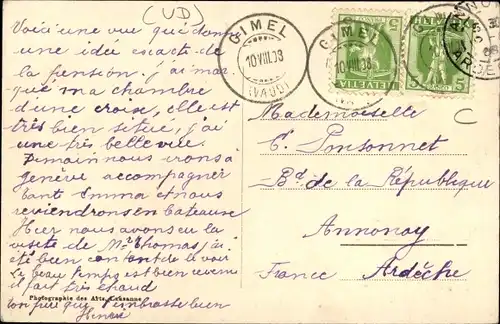 (VD)
Voici une vue qui donne
une idée exacte de
la pension. j'ai mar-
qué ma chambre
d'une croix, elle est
très bien située, j'ai
une très belle vue.
Demain nous irons à
genève accompagner
tant Emma et nous
reviendrons en bateau
Hier nous avons eu la
visite de Mr Thomas, j'ai
été bien content de le voir
Le beau temps est bien revenu
il fait très chaud
ton qui t'embrasse bien
GIMEL
10 VIII 08
(VAUD)
GIMEL
10 VIII 08
HELVETIA
5
5
Mademoiselle
C. Poissonnet
Bd de la République
Annonay
Ardèche
France
C
Photographie des Arts, Lausanne